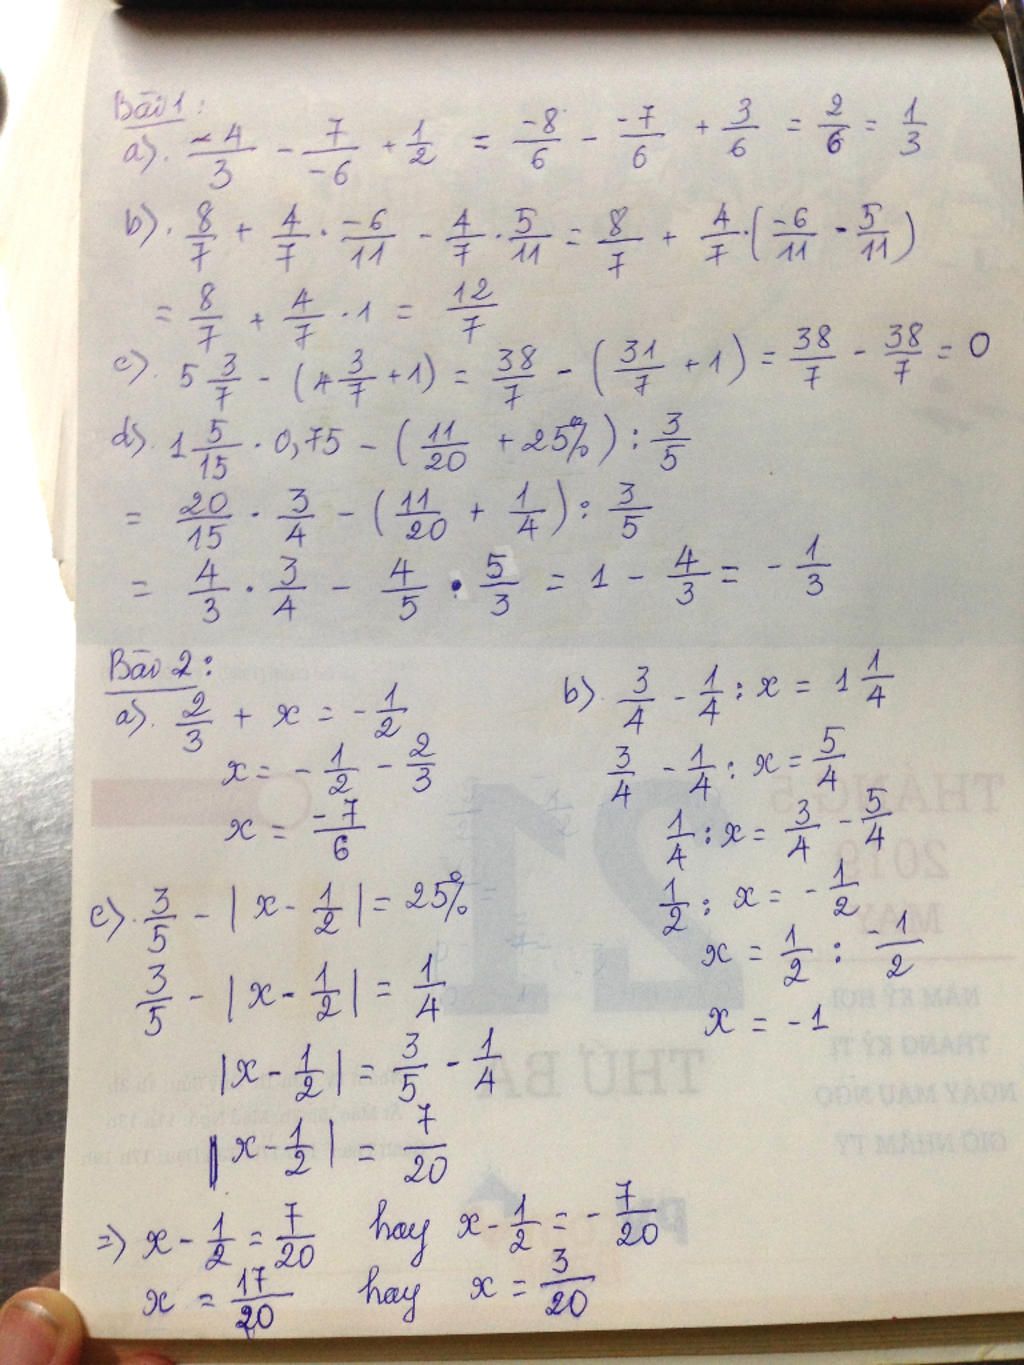 Bài 1:
a). -4/3 - 7/-6 + 1/2 = -8/6 - -7/6 + 3/6 = 2/6 = 1/3
b). 8/7 + 4/7 . -6/11 - 4/7 . 5/11 = 8/7 + 4/7 . (-6/11 - 5/11)
= 8/7 + 4/7 . 1 = 12/7
c). 5 3/7 - (4 3/7 + 1) = 38/7 - (31/7 + 1) = 38/7 - 38/7 = 0
d). 1 5/15 . 0,75 - (11/20 + 25%) : 3/5
= 20/15 . 3/4 - (11/20 + 1/4) : 3/5
= 4/3 . 3/4 - 4/5 . 5/3 = 1 - 4/3 = - 1/3
Bài 2:
a). 2/3 + x = - 1/2
x = - 1/2 - 2/3
x = -7/6
b). 3/4 - 1/4 : x = 1 1/4
3/4 - 1/4 : x = 5/4
1/4 : x = 3/4 - 5/4
1/2 : x = - 1/2
x = 1/2 : -1/2
x = -1
c). 3/5 - | x - 1/2 | = 25%
3/5 - | x - 1/2 | = 1/4
| x - 1/2 | = 3/5 - 1/4
| x - 1/2 | = 7/20
=> x - 1/2 = 7/20 hay x - 1/2 = - 7/20
x = 17/20 hay x = 3/20
THÁNG 5
2019
MAY
21
THỨ BA
NĂM KỶ HỢI
THÁNG KỶ TỊ
NGÀY MẬU NGỌ
GIỜ NHÂM TÝ